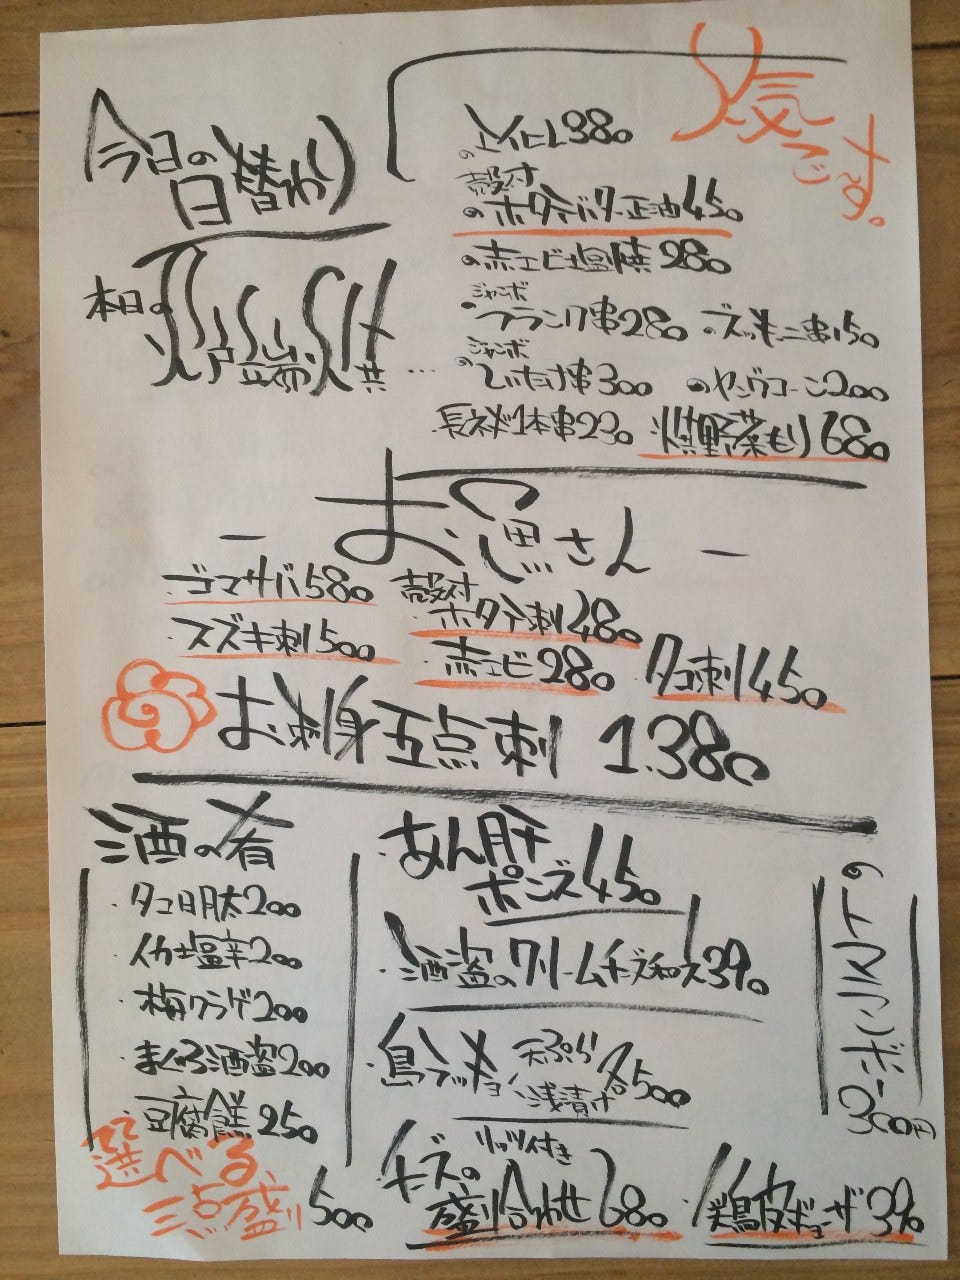 今日の
日替わり
人気
です。
エイヒレ380
殻付
ホタテバター正油450
赤エビ塩焼280
本日の
炉端焼
ジャンボ
フランク串280
ズッキーニ串150
ジャンボ
しいたけ串300
ヤングコーン200
長ネギ1本串230
焼野菜もり680
お魚さん
ゴマサバ580
殻付
ホタテ刺480
スズキ刺500
赤エビ280
タコ刺450
お刺身五点刺 1.380
酒の肴
タコ明太200
イカ塩辛200
梅クラゲ200
まぐろ酒盗200
豆腐餻250
選べる
三点盛り500
あん肝
ポンズ450
酒盗のクリームチーズ和え390
島ラッキョ
天ぷら
浅漬け
各500
チーズの
リッツ付き
盛り合わせ680
鶏皮ギョーザ390
380円